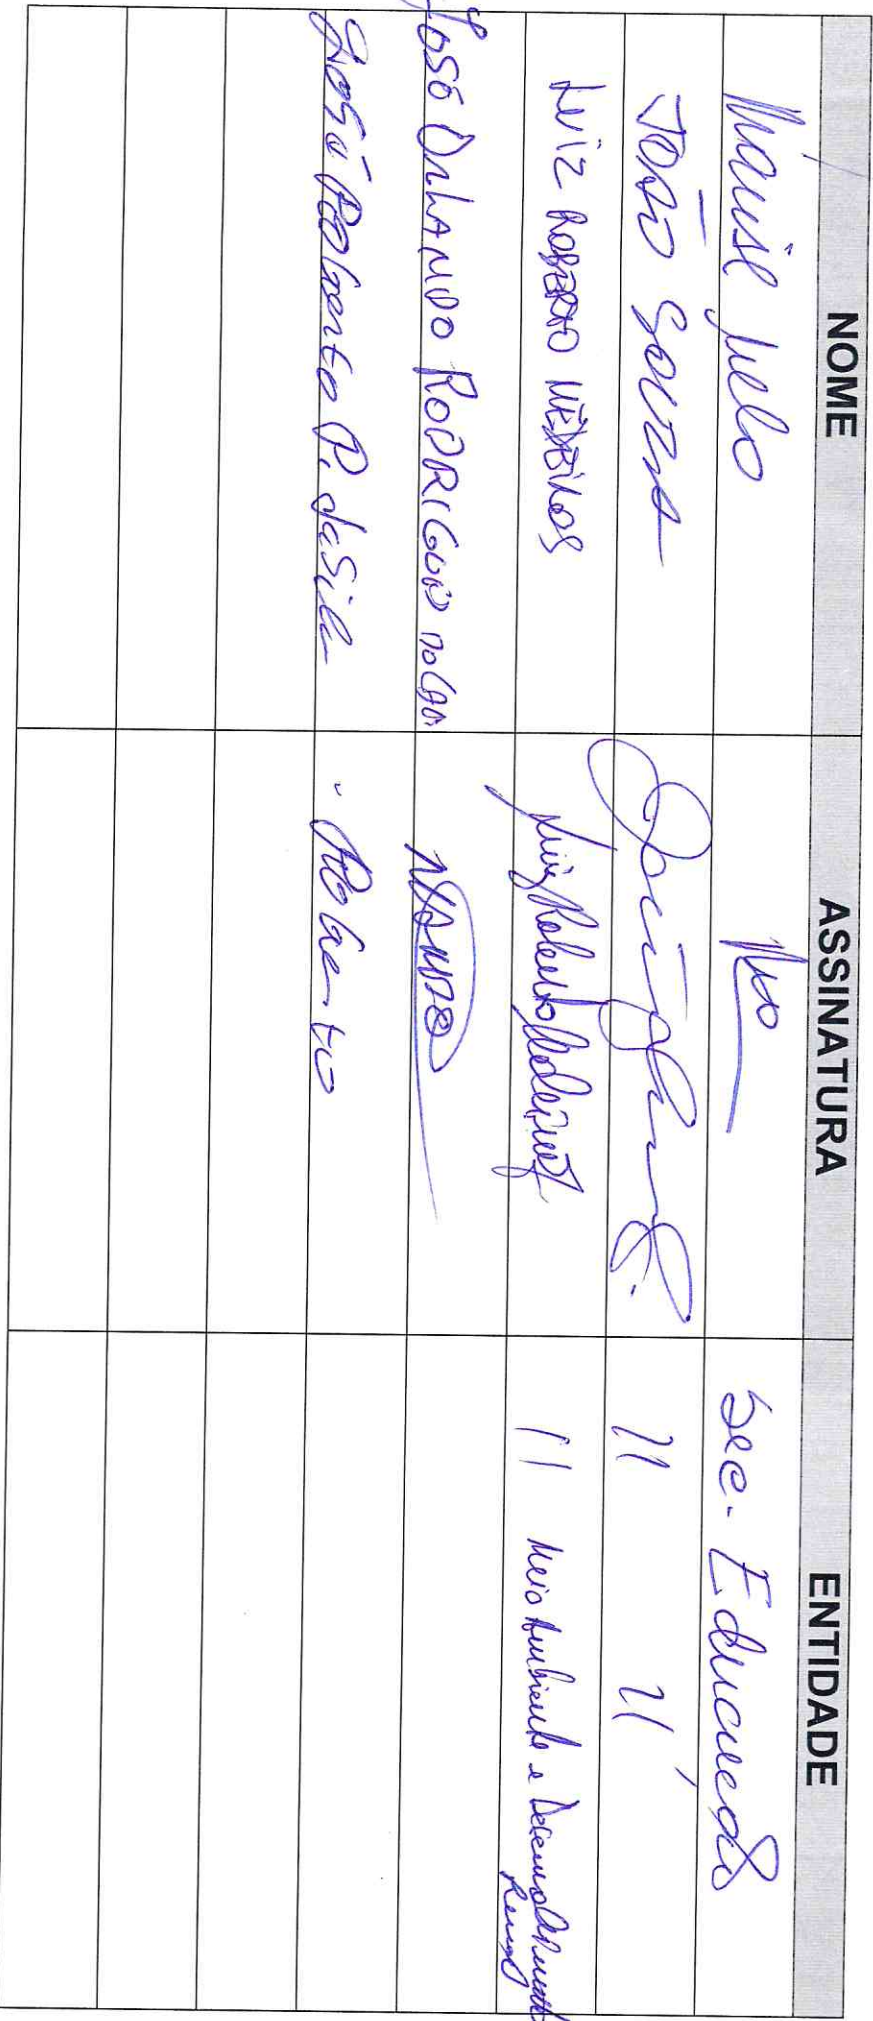 NOME ASSINATURA ENTIDADE
Melo Sec. Educação
JOÃO SOUZA 11 11
LUIZ ROBERTO MEDEIROS Luiz Roberto Medeiros 11 Meio Ambiente e Desenvolvimento
JOSÉ ORLANDO RODRIGUES
José Roberto P. da Silva Roberto